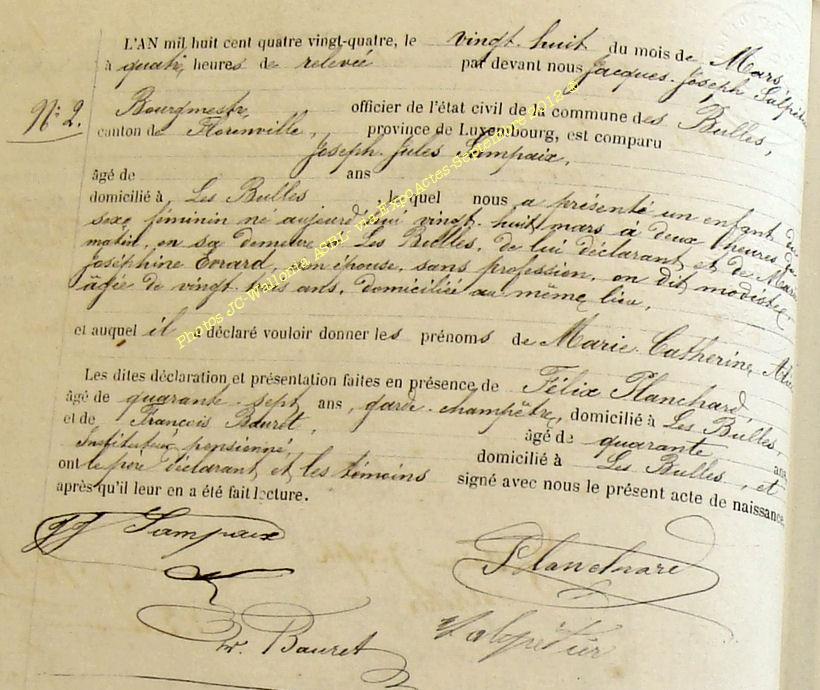 L'AN mil huit cent quatre vingt-quatre, le vingt-huit du mois de Mars,
à quatre heures de relevée par devant nous Jacques-Joseph Salpétier
N° 2.
Bourgmestre, officier de l'état civil de la commune des Bulles,
canton de Florenville, province de Luxembourg, est comparu
Joseph Jules Sampaix,
âgé de ans
domicilié à Les Bulles, lequel nous a présenté un enfant du
sexe féminin né aujourd'hui vingt-huit mars à deux heures du
matin, en sa demeure à Les Bulles, de lui déclarant et de Marie
Joséphine Evrard, son épouse, sans profession, on dit modiste,
âgée de vingt ans, domiciliée au même lieu,
et auquel il a déclaré vouloir donner les prénoms de Marie Catherine
Les dites déclaration et présentation faites en présence de Félix Planchard,
âgé de quarante-sept ans, garde-champêtre, domicilié à Les Bulles,
et de François Bauret, âgé de quarante ans,
Instituteur pensionné, domicilié à Les Bulles, et
ont le père déclarant et les témoins signé avec nous le présent acte de naissance
après qu'il leur en a été fait lecture.
JJ Sampaix
Planchard
Fr. Bauret
Salpétier
Photos JC-Wallonia ASBL, via ExpoActes-Septembre 2012